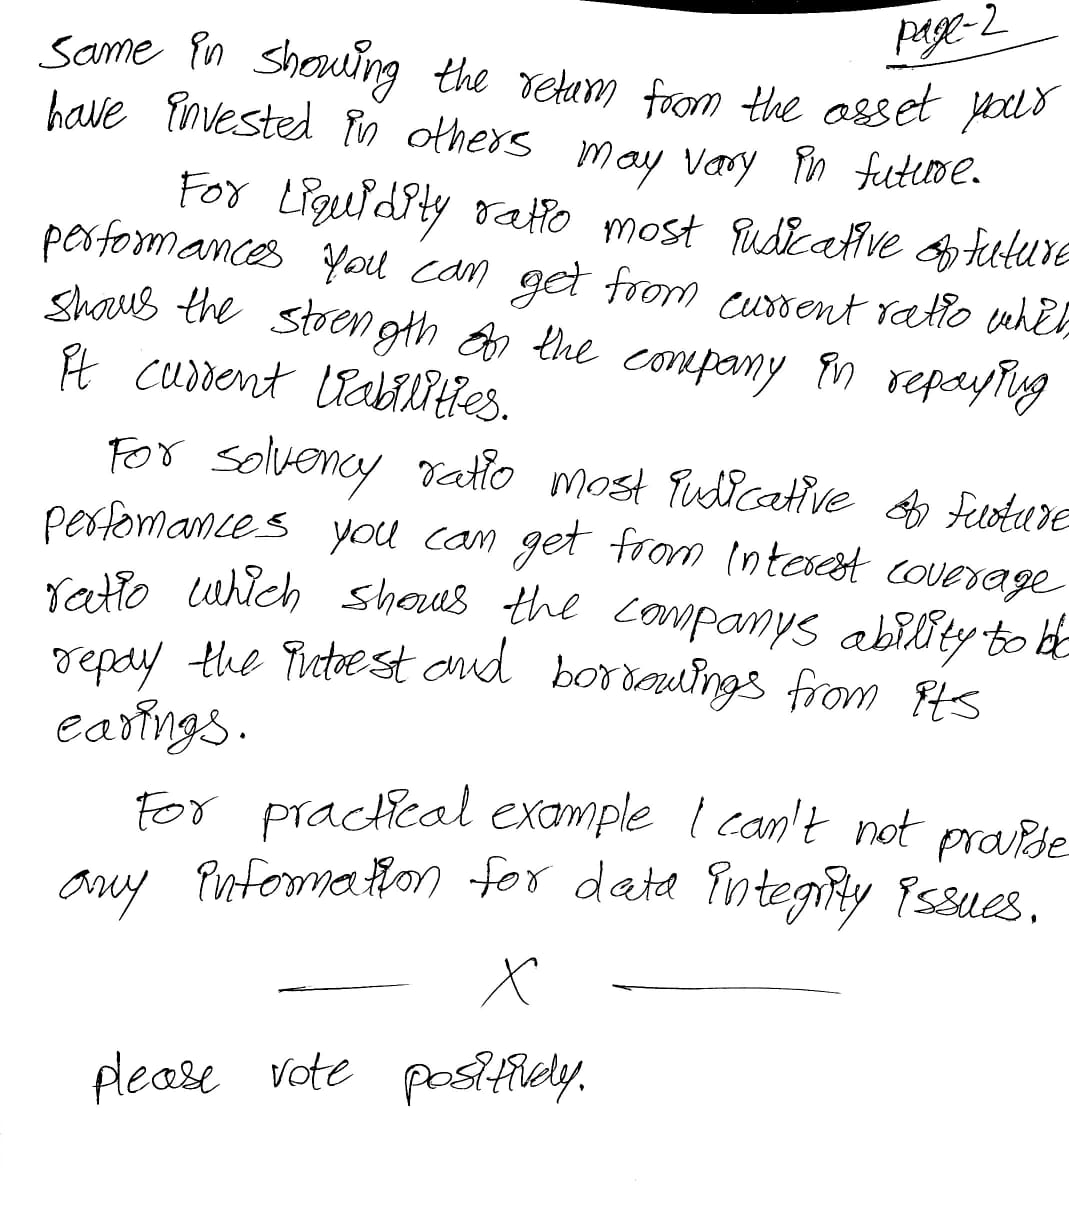 page-2
Same in showing the return from the asset your
have invested in others may vary in future.
For Liquidity ratio most indicative of future
performances you can get from current ratio which
shows the strength of the company in repaying
it current liabilities.
For solvency ratio most indicative of fusture
perfomances you can get from Interest coverage
ratio which shows the companys ability to
repay the intrest and borrowings from its
earings.
For practical example I can't not provide
any information for data integrity issues.
X
please vote positively.